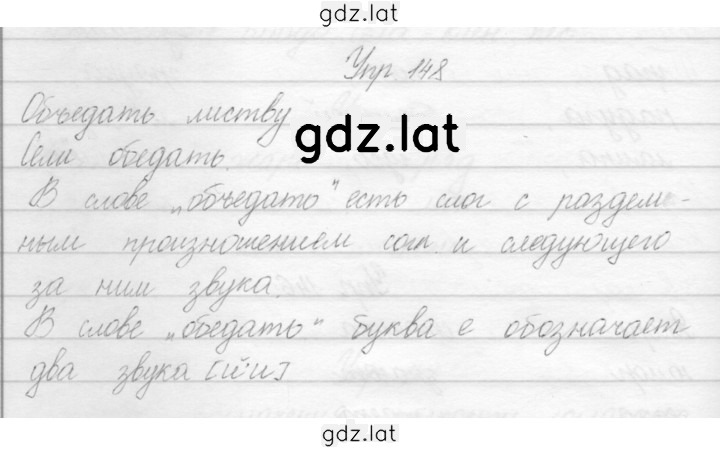 gdz.lat
Упр 148
Объедать листву
gdz.lat
Сели обедать.
В слове „объедать" есть слог с раздель-
ным произношением согл. и следующего
за ним звука.
В слове „объедать" буква е обозначает
два звука [й'и]
gdz.lat